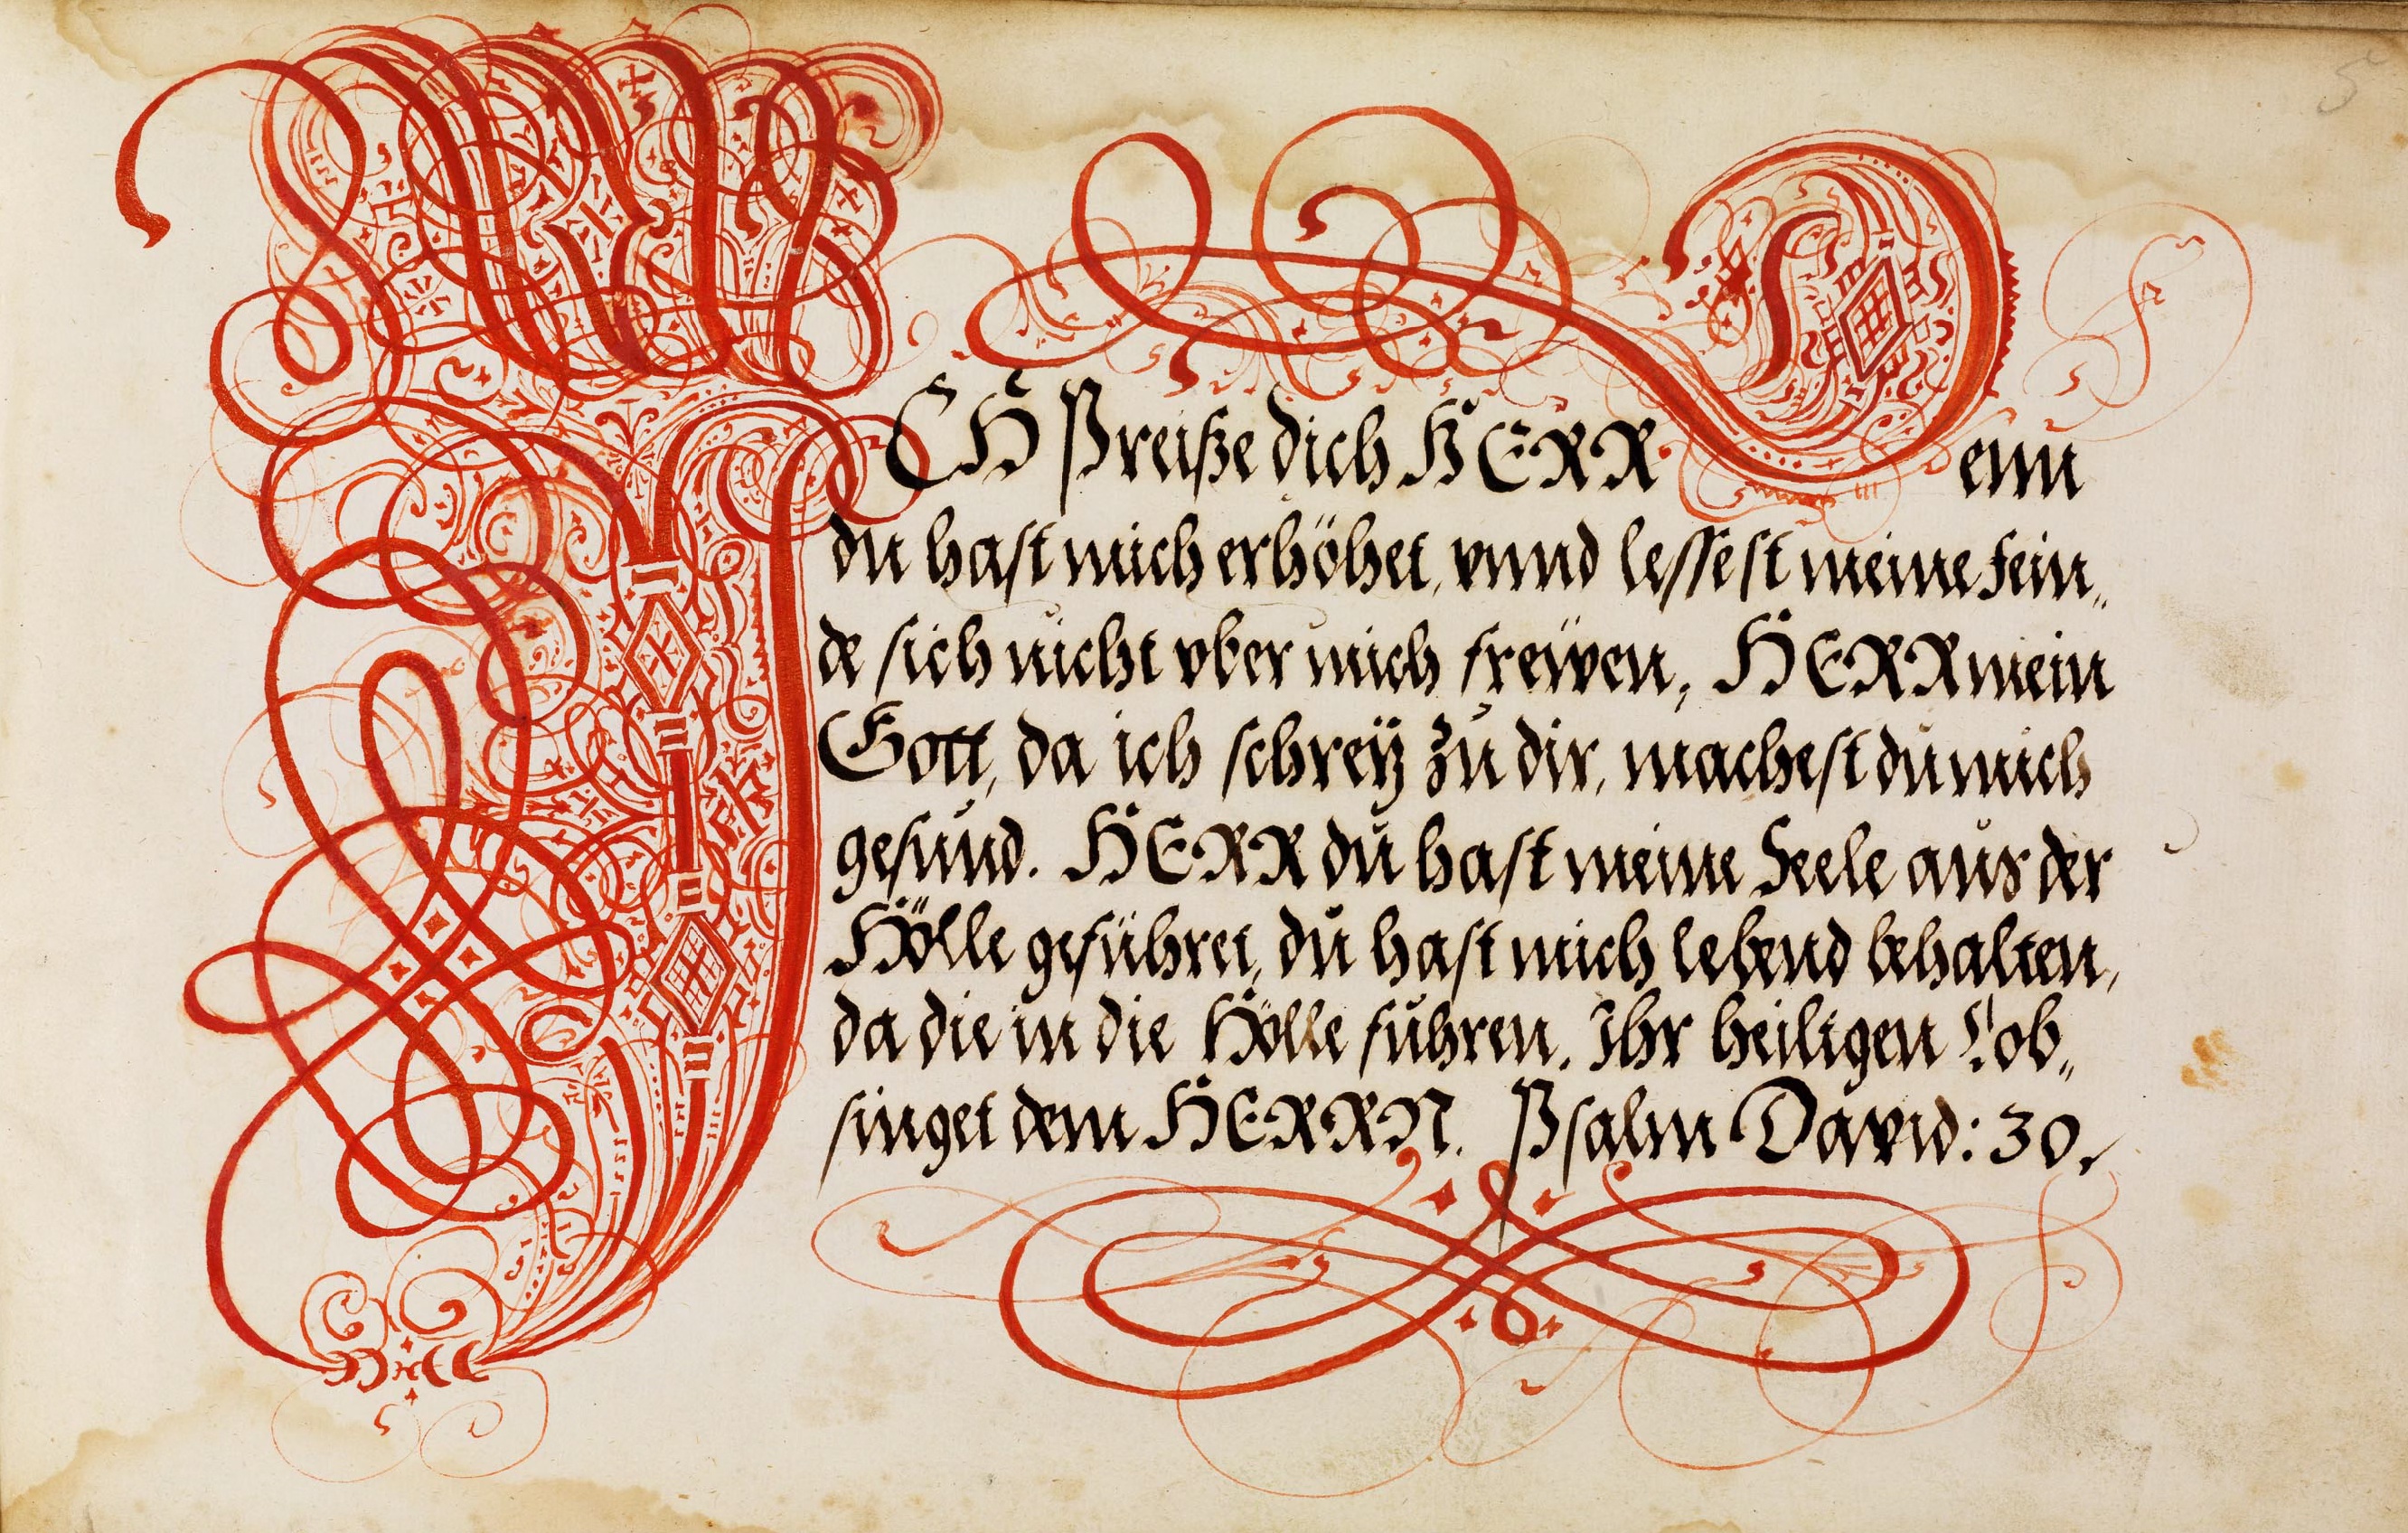 ICH Preiße dich HERR Denn
du hast mich erhöhet, vnnd lessest meine fein„
de sich nicht vber mich freẅen, HERR mein
Gott, da ich schreÿ zu dir, machest du mich
gesund. HERR du hast meine Seele aus der
Hölle geführet, du hast mich lebend behalten,
da die in die Hölle führen. Ihr heiligen Lob„
singet dem HERRN. Psalm David: 30.